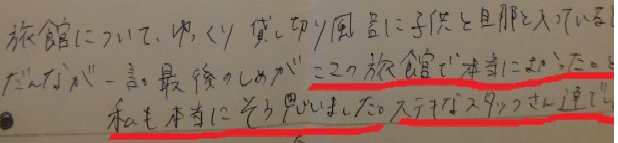 旅館について、ゆっくり貸し切り風呂に子供と旦那と入っていると
だんなが一言。最後のしめがこの旅館で本当によかった。と
私も本当にそう思いました。ステキなスタッフさん達でし